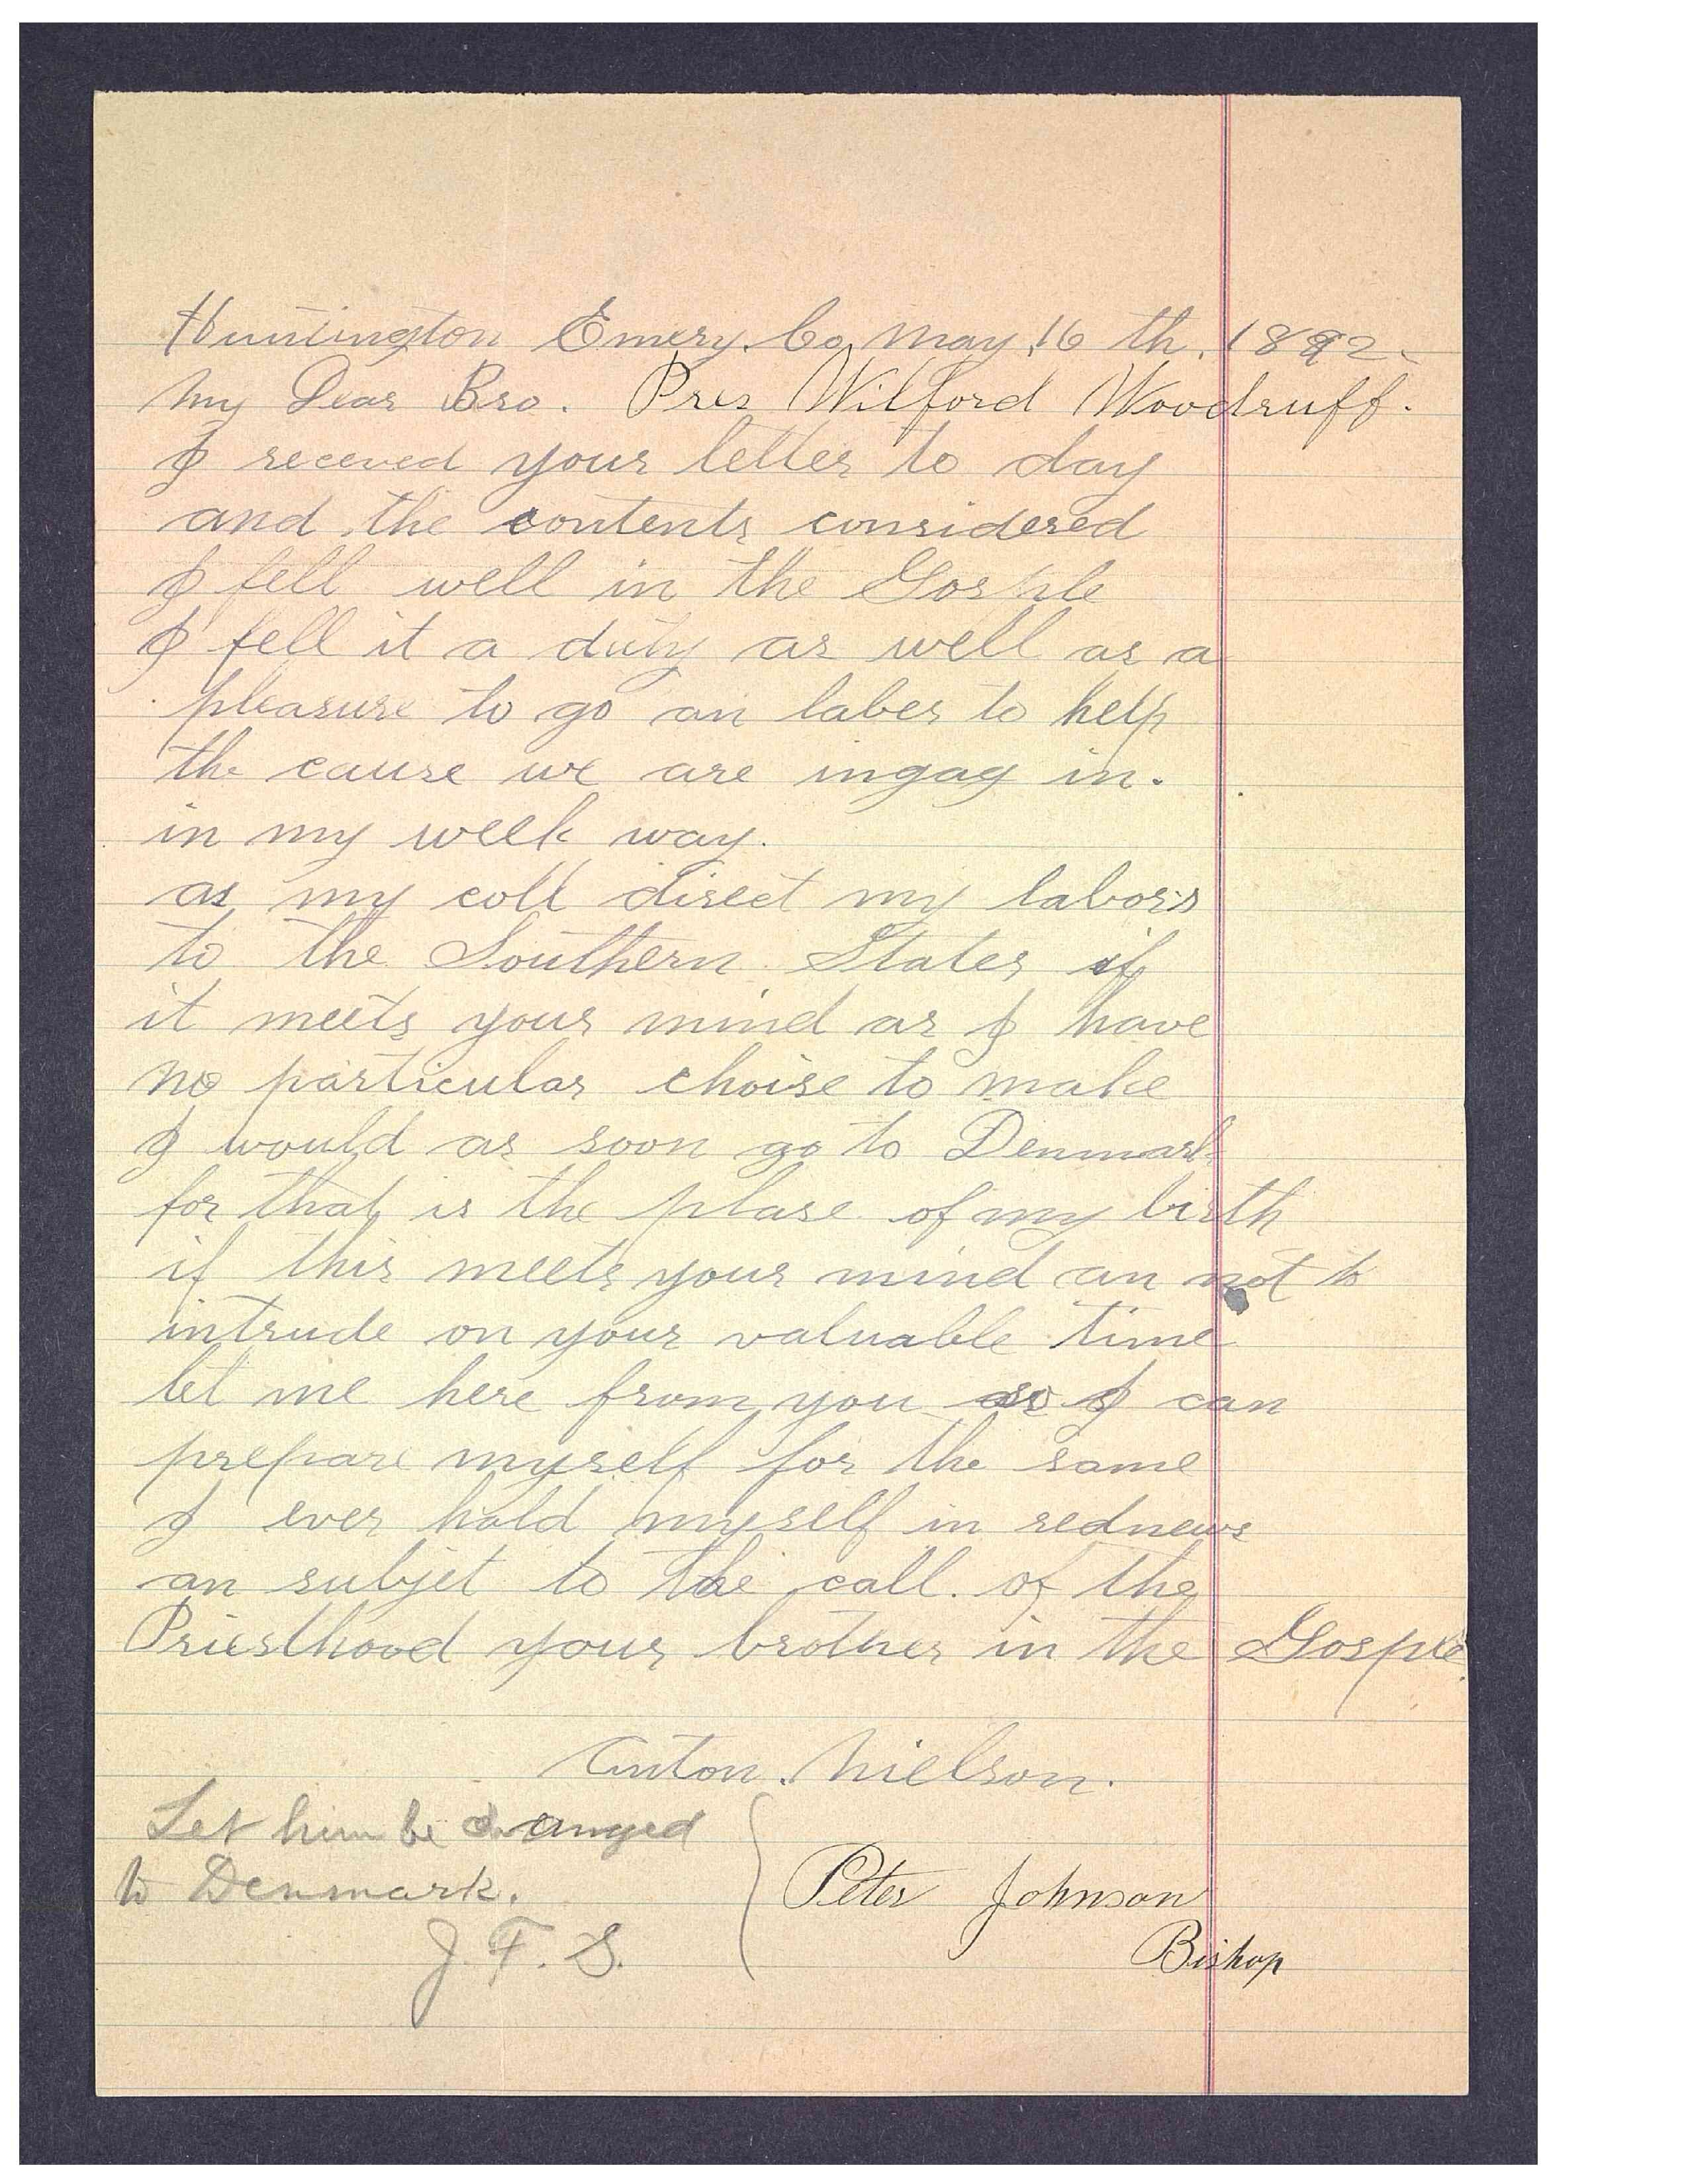 Huntington Emery. Co, May, 16 th. 1892.
My Dear Bro. Pres Wilford Woodruff.
I receved your letter to day
and the contents considered
I fell well in the Gosple
I fell it a duty as well as a
pleasure to go an laber to help
the cause we are ingag in.
in my week way.
as my coll direct my labors
to the Southern States if
it meets your mind as I have
no particular choise to make
I would as soon go to Denmark
for that is the plase of my birth
if this meets your mind an not to
intrude on your valuable time
let me here from you so I can
prepare myself for the same
I ever hold myself in rednews
an subjet to the call. of the
Priesthood your brother in the Gosple.
Anton. Nielson.
Let him be changed
to Denmark.
J. F. S.
Peter Johnson
Bishop